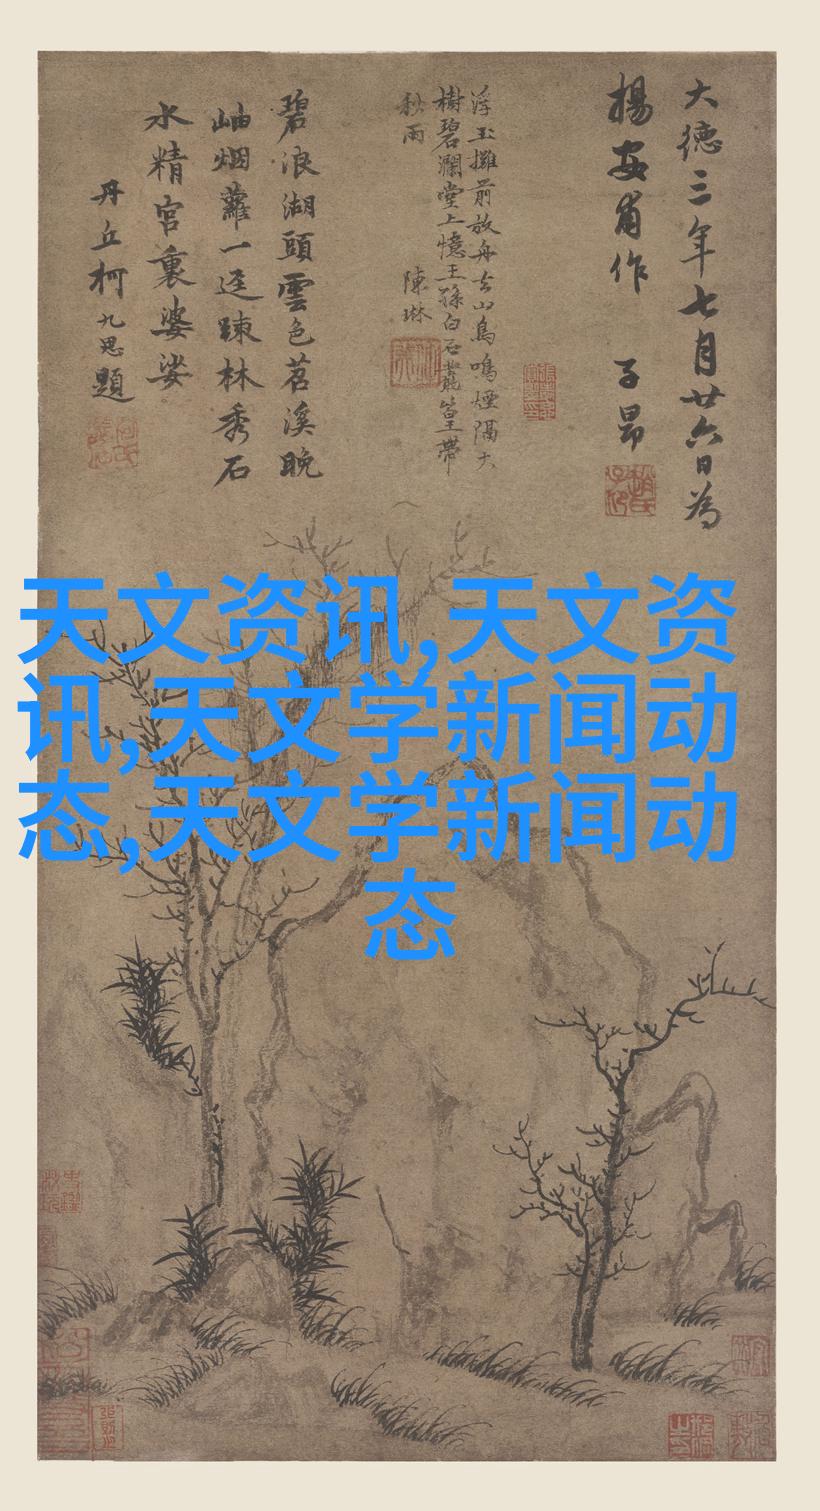 大德三年七月廿六日為
楊安甫作 子昂
浮玉攤前放舟去山鳥鳴煙隔大
樹碧瀾堂上憶王孫白石叢篁帶
秋雨 陳琳
碧浪湖頭雲色苕溪晚
岫烟蘿一逕踈林秀石
水精宮裏婆娑
丹丘柯九思題
天文资讯,天文资
讯,天文学新闻动
态,天文学新闻动
态